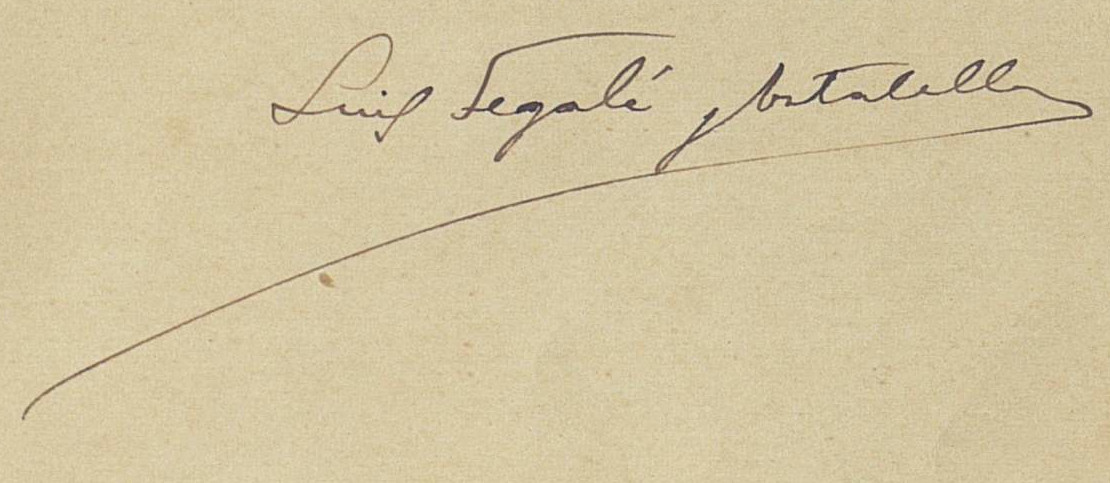 Luis Segalá y Estalella